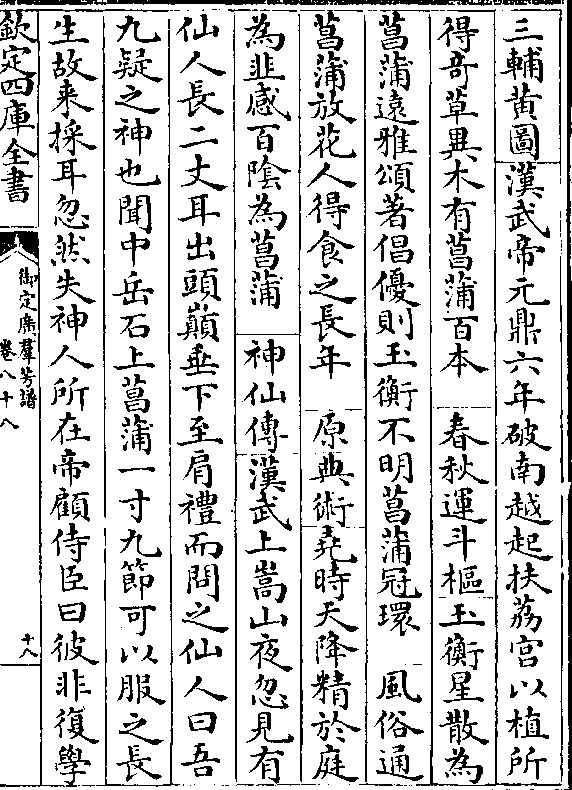 三輔黄圖漢武帝元鼎六年破南越起扶荔宫以植所
得竒草異木有菖蒲百本　春秋運斗樞玉衡星散為
菖蒲遠雅頌著倡優則玉衡不明菖蒲冠環　風俗通
菖蒲放花人得食之長年　原典術堯時天降精於庭
為韭感百隂為菖蒲　神仙傳漢武上嵩山夜忽見有
仙人長二丈耳出頭巔垂下至肩禮而問之仙人曰吾
九疑之神也聞中岳石上菖蒲一寸九節可以服之長
生故来採耳忽然失神人所在帝顧侍臣曰彼非復學
欽定四庫全書
御定廣羣芳譜
卷八十八
十八